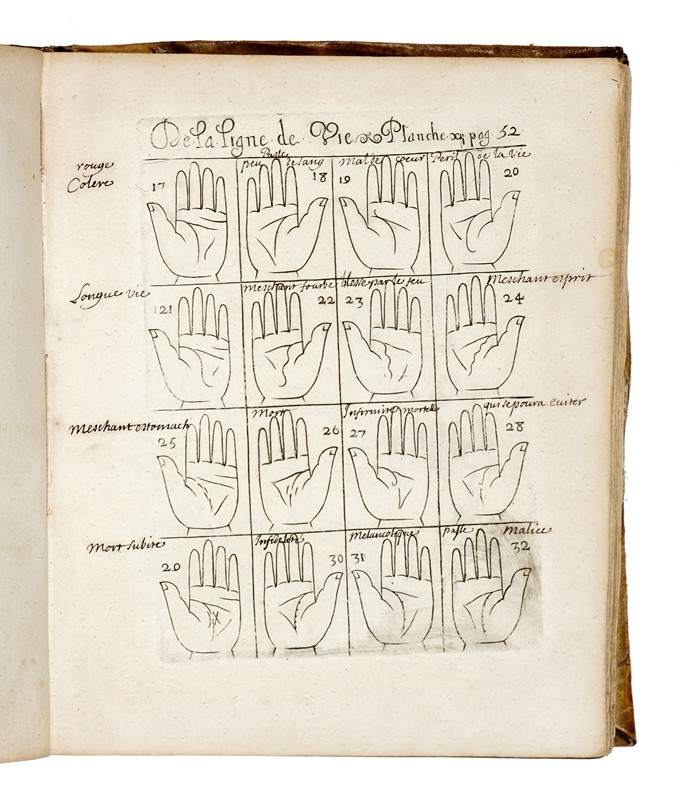 De la ligne de Vie Planche xj pag 52
rouge
Colere
Pasle
peu de sang
mal de coeur
Peril de la Vie
17
18
19
20
Longue Vie
meschant fourbe
blesse par le feu
Meschant esprit
21
22
23
24
Meschant estomach
Mort
Infirmite mortelle
qui se poura eviter
25
26
27
28
Mort subite
Infidelite
Melancolique
pasle
Malice
20
30
31
32